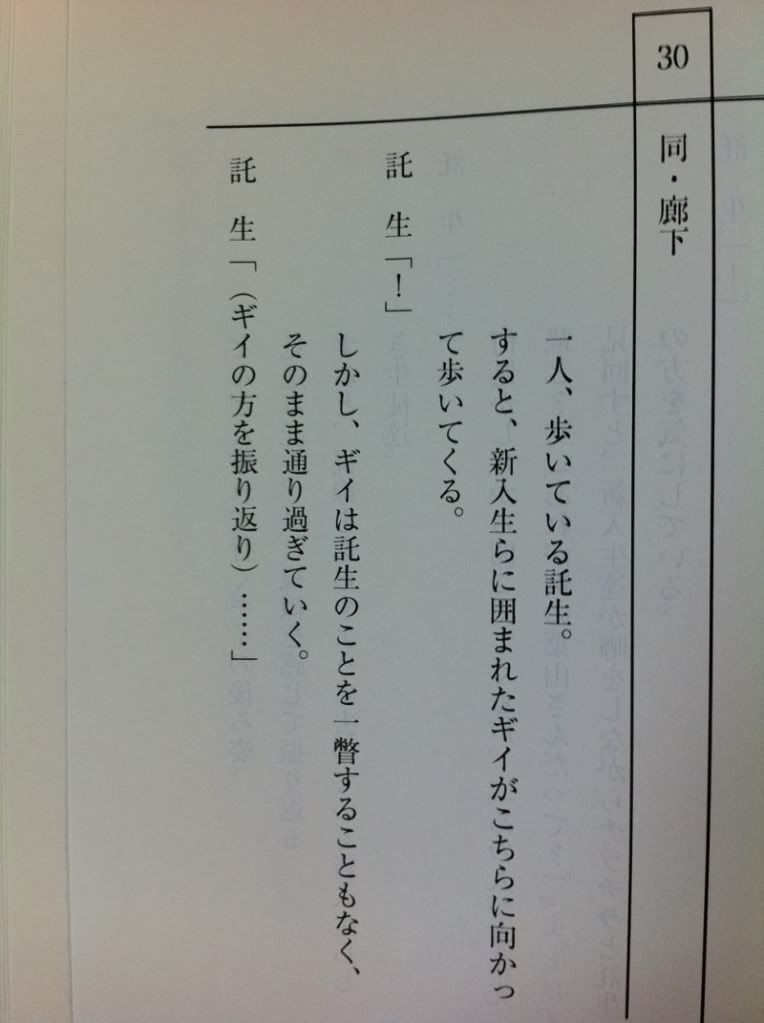 30
同・廊下
一人、歩いている託生。
すると、新入生らに囲まれたギイがこちらに向かっ
て歩いてくる。
託　生「！」
しかし、ギイは託生のことを一瞥することもなく、
そのまま通り過ぎていく。
託　生「（ギイの方を振り返り）……」